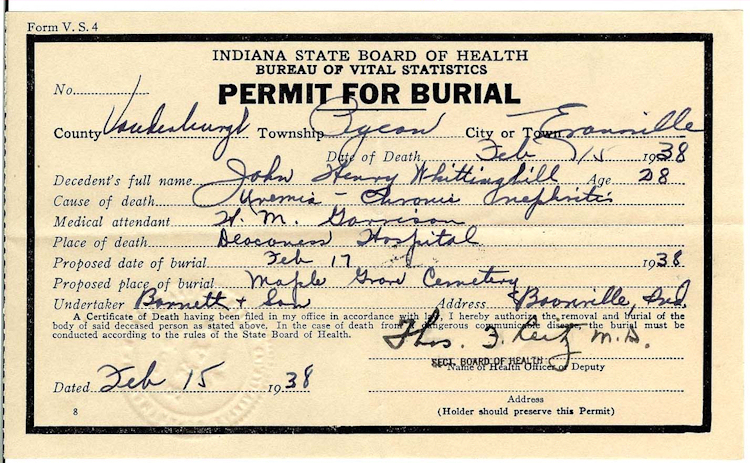 Form V. S. 4
INDIANA STATE BOARD OF HEALTH
BUREAU OF VITAL STATISTICS
No.
PERMIT FOR BURIAL
County Vanderburgh Township Pigeon City or Town Evansville
Date of Death Feb 15 1938
Decedent's full name John Henry Whittinghill Age 28
Cause of death Uremia - Chronic nephritis
Medical attendant H. M. Garrison
Place of death Deaconess Hospital
Proposed date of burial Feb 17 1938
Proposed place of burial Maple Grove Cemetery
Undertaker Barnett & Son Address Boonville, Ind.
A Certificate of Death having been filed in my office in accordance with law, I hereby authorize the removal and burial of the
body of said deceased person as stated above. In the case of death from dangerous communicable disease the burial must be
conducted according to the rules of the State Board of Health.
Thos. F. Reitz M.D.
SECT. BOARD OF HEALTH
Name of Health Officer or Deputy
Dated Feb 15 1938
Address
8
(Holder should preserve this Permit)